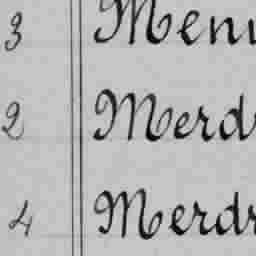 3 Menu
2 Merdr
4 Merdr